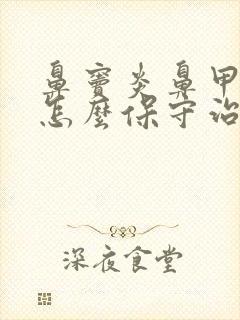 鼻竇炎鼻甲
怎麼保守治
深夜食堂